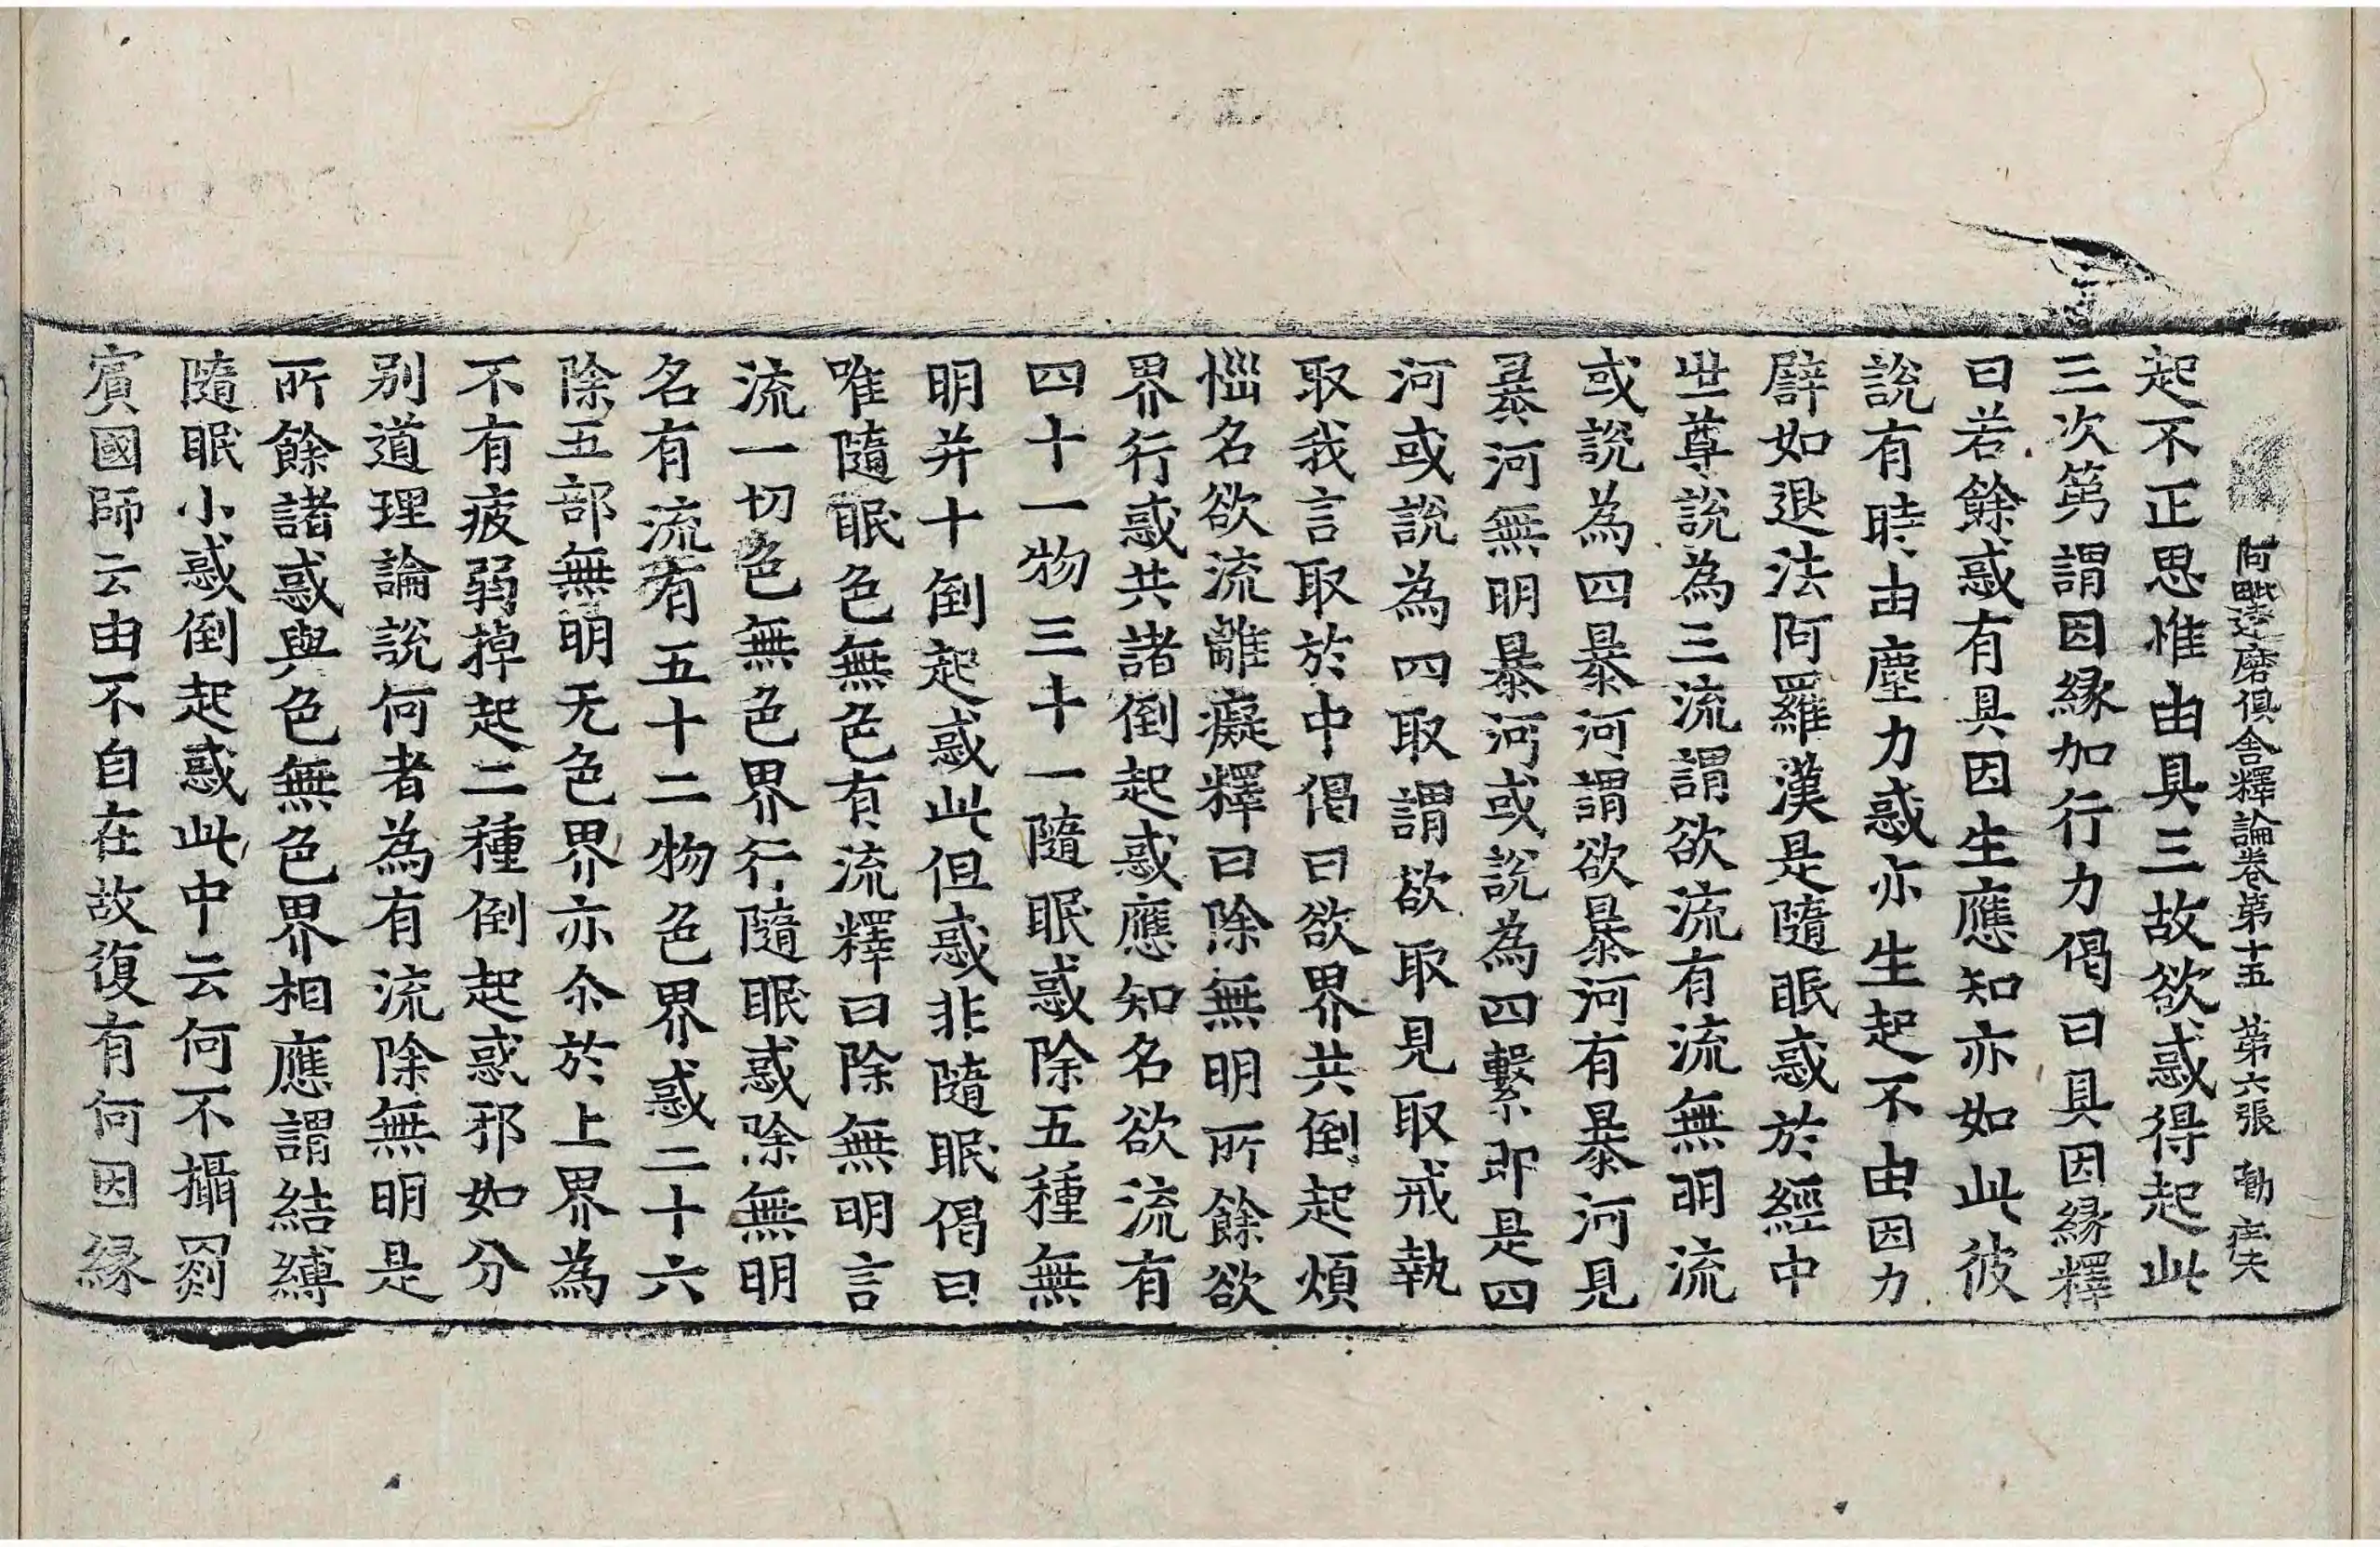 阿毗達磨俱舍釋論卷第十五 第六張 動
起不正思惟由具三故欲惑得起此
三次第謂因縁加行力偈曰具因縁釋
曰若餘惑有具因生應知亦如此彼
說有時由塵力惑亦生起不由因力
譬如退法阿羅漢是隨眠惑於經中
世尊說為三流謂欲流有流無明流
或說為四暴河謂欲暴河有暴河見
暴河無明暴河或說為四繫即是四
河或說為四取謂欲取見取戒執
取我言取於中偈曰欲界共倒起煩
惱名欲流離癡釋曰除無明所餘欲
界行惑共諸倒起惑應知名欲流有
四十一物三十一隨眠惑除五種無
明并十倒起惑此但惑非隨眠偈曰
唯隨眠色無色有流釋曰除無明言
流一切色無色界行隨眠惑除無明
名有流有五十二物色界惑二十六
除五部無明无色界亦尒於上界為
不有疲弱掉起二種倒起惑邪如分
別道理論說何者為有流除無明是
所餘諸惑與色無色界相應謂結縛
隨眠小惑倒起惑此中云何不攝罽
賓國師云由不自在故復有何因縁